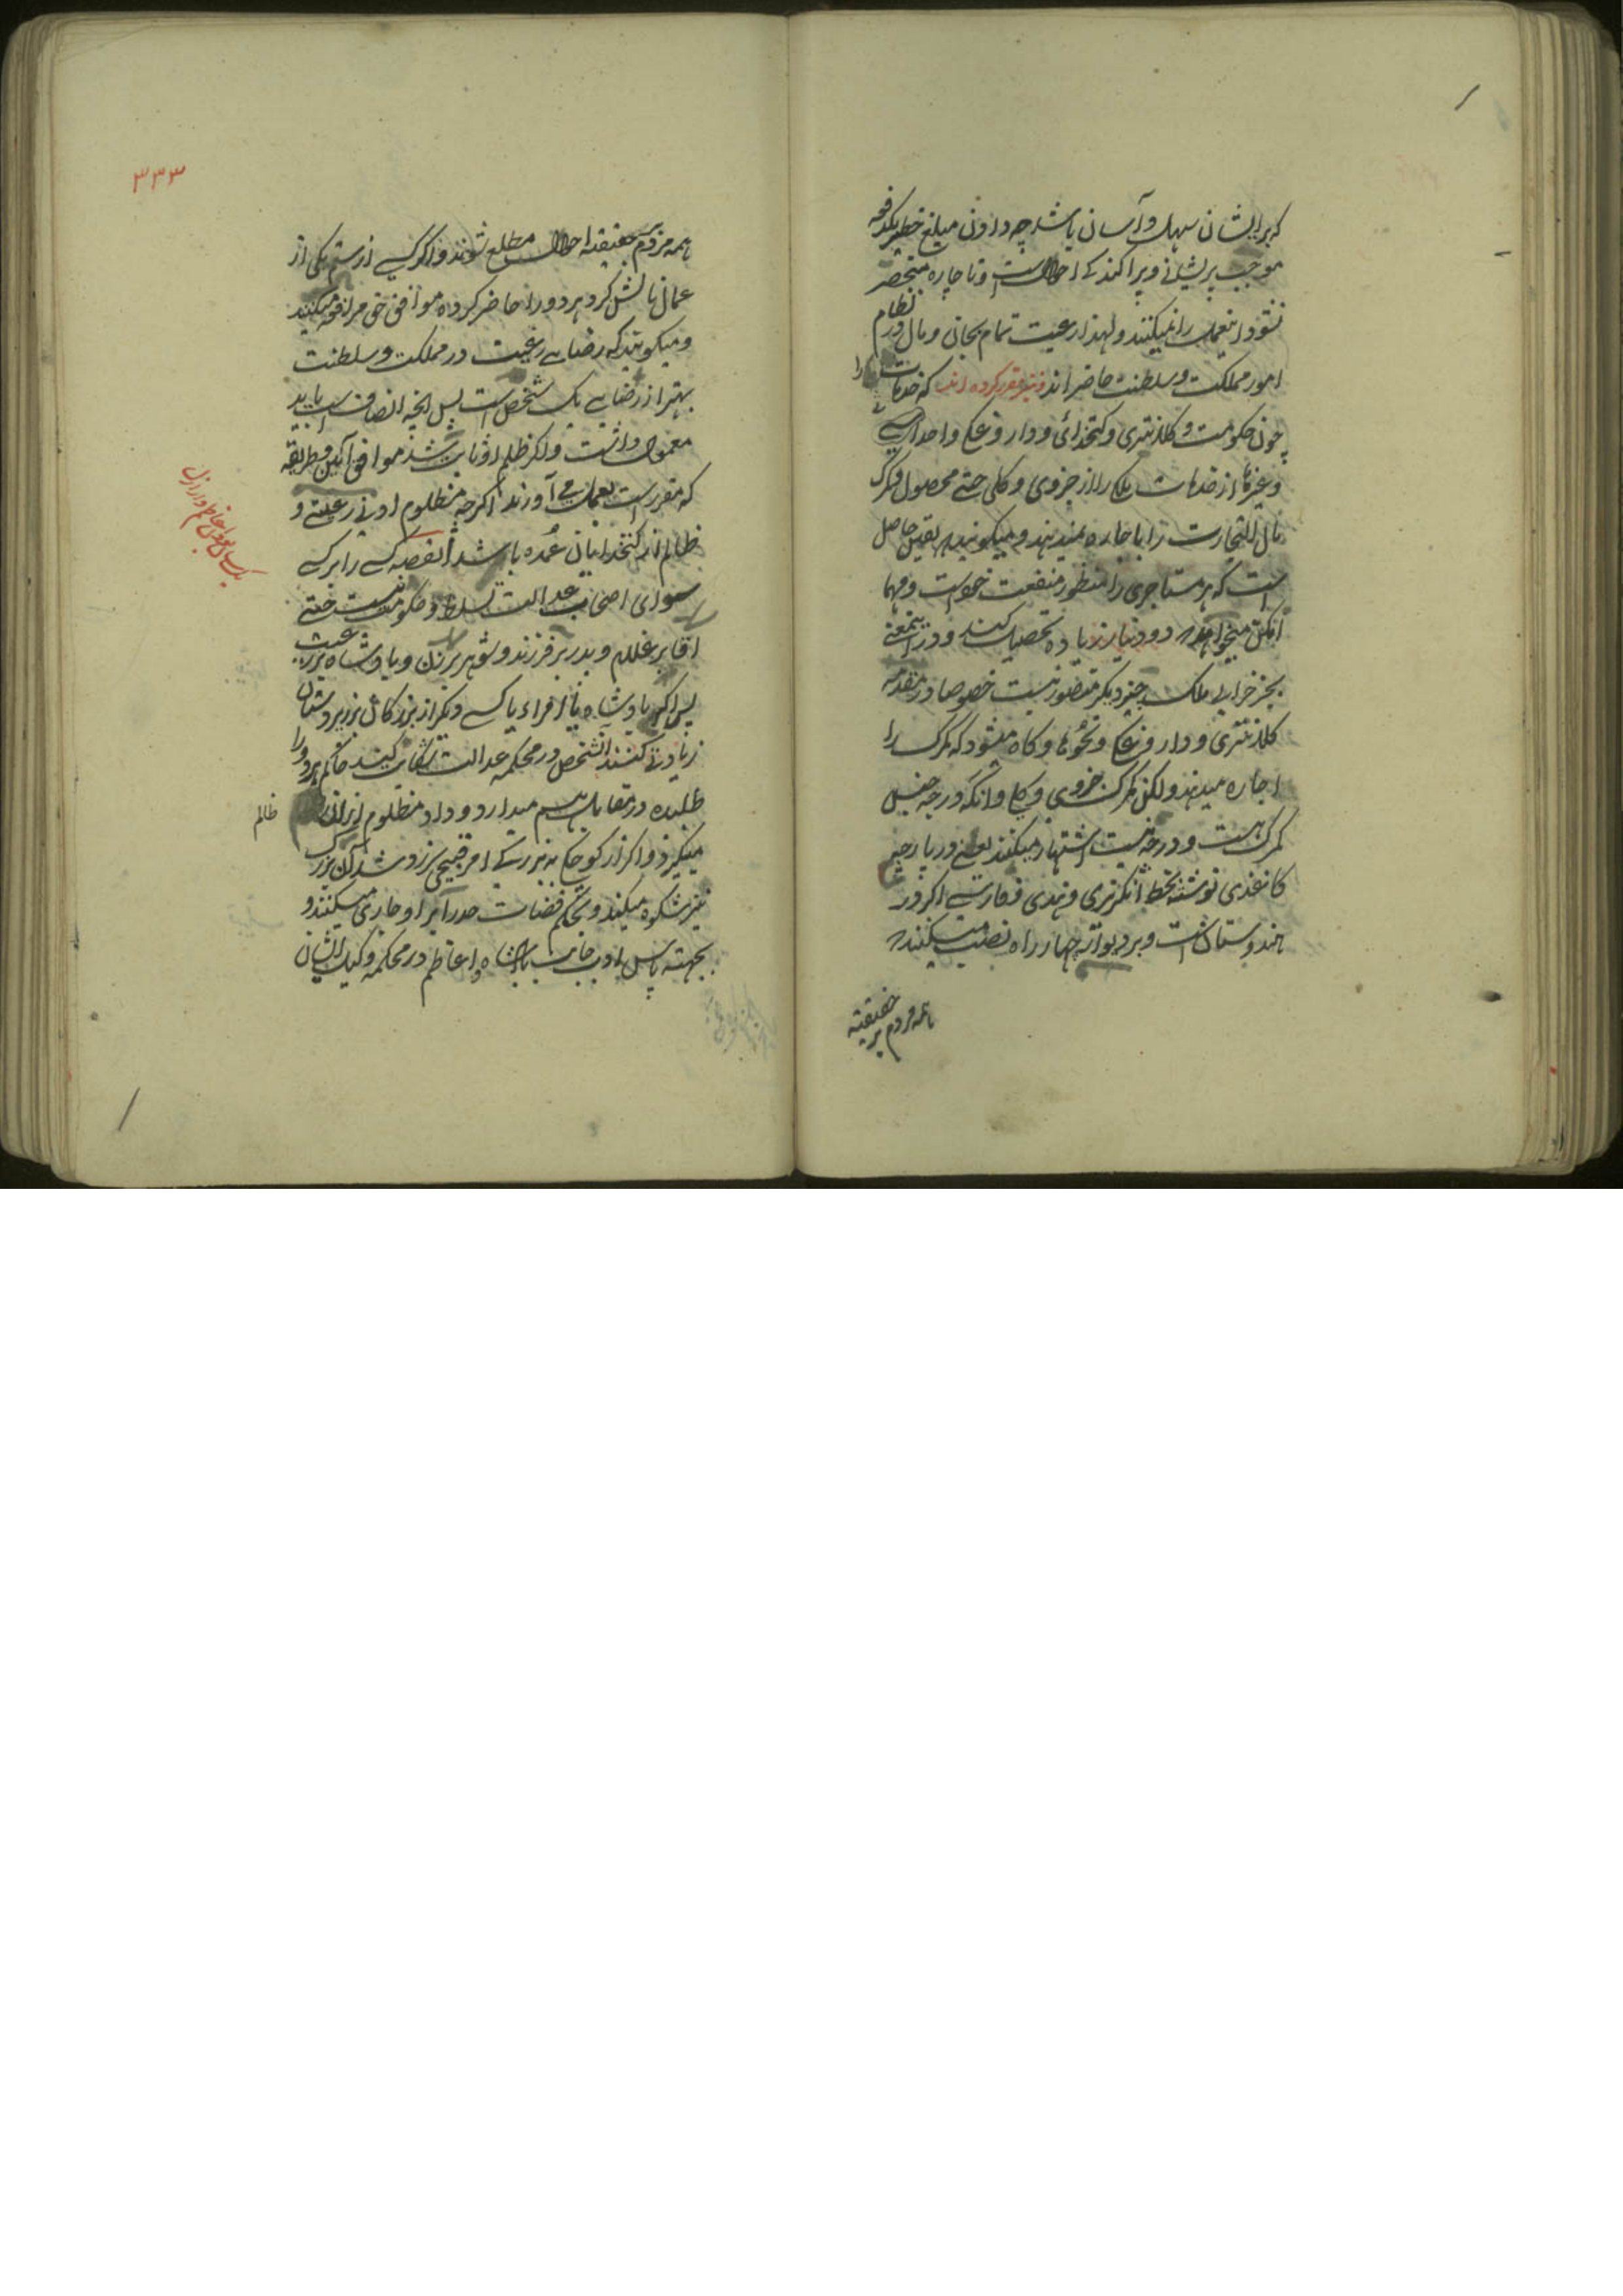 که بر ایشان سهل و آسان باشد چه دادن مبلغ خطیر یکدفعه
موجب پریشانی و پراکندگی احوالست و تا چاره منحصر
نشود اینعمل را نمیکنند و لهذا رعیت تمام بجان و مال در نظام
امور مملکت و سلطنت حاضراند و نیز مقرر کرده اند که خدمات را
چون حکومت و کلانتری و کتخدائی و داروغگی و احداثی
و غیرها از خدمات ملکی را از جزوی و کلی حتی محصول گمرک
مال التجارت را باجاره نمیدهند و میگویند یقین حاصل
است که هر مستاجری را منظور منفعت خود است و مهما
امکن میخواهد دو دینار زیاده تحصیل کند و در اینمعنی
بجز خرابی ملک چیز دیگر متصور نیست خصوصا در مقدمه
کلانتری و داروغگی و نحوها و گاه میشود که گمرک را
اجاره میدهند ولکن گمرک جزوی و کلی و آنکه در چه جنس
گمرک هست و در چه نیست اشتهار میکنند یعنی در پارچه
کاغذی نوشته بخط انگریزی و هندی و فارسی اگر در
هندوستان است و بر دیوار چهار راه نصب میکنند
همه مردم بر حقیقة
۳۳۳
همه مردم بر حقیقة احوال مطلع شوند و اگر کسی از ستم یکی از
عمال نالش کرد هر دو را حاضر کرده موافق حق مرافعه میکنند
و میگویند که رضای رعیت در مملکت و سلطنت
بهتر از رضای یک شخص است پس آنچه انصاف است باید
معمول داشت و اگر ظلم او ثابت شد موافق آئین و طریقه
که مقرر است بعمل می آورند اگر چه مظلوم ادنی رعیتی و
ظالم از کتخدایان عمده باشد القصه کسی را بر کسی
سوای اصحاب عدالت تسلط و حکومت نیست حتی
اقا بر غلام و پدر بر فرزند و شوهر بر زن و پادشاه بر رعیت
پس اگر پادشاه یا از امراء یا کسی دیگر از بزرگان بر زیردستان
زیادتی کنند آنشخص در محکمه عدالت شکایت کند حاکم هر دو را
طلبیده در مقابل هم میدارد و داد مظلوم از آن ظالم
میگیرد و اگر از کوچکی به بزرگی امر قبیحی سرزد شد آن بزرگ
نیز شکوه میکند و بحکم قضات حد را بر او جاری میکنند و
بجهته پاس ادب جانب پادشاه و اعاظم در محکمه وکیل ایشان